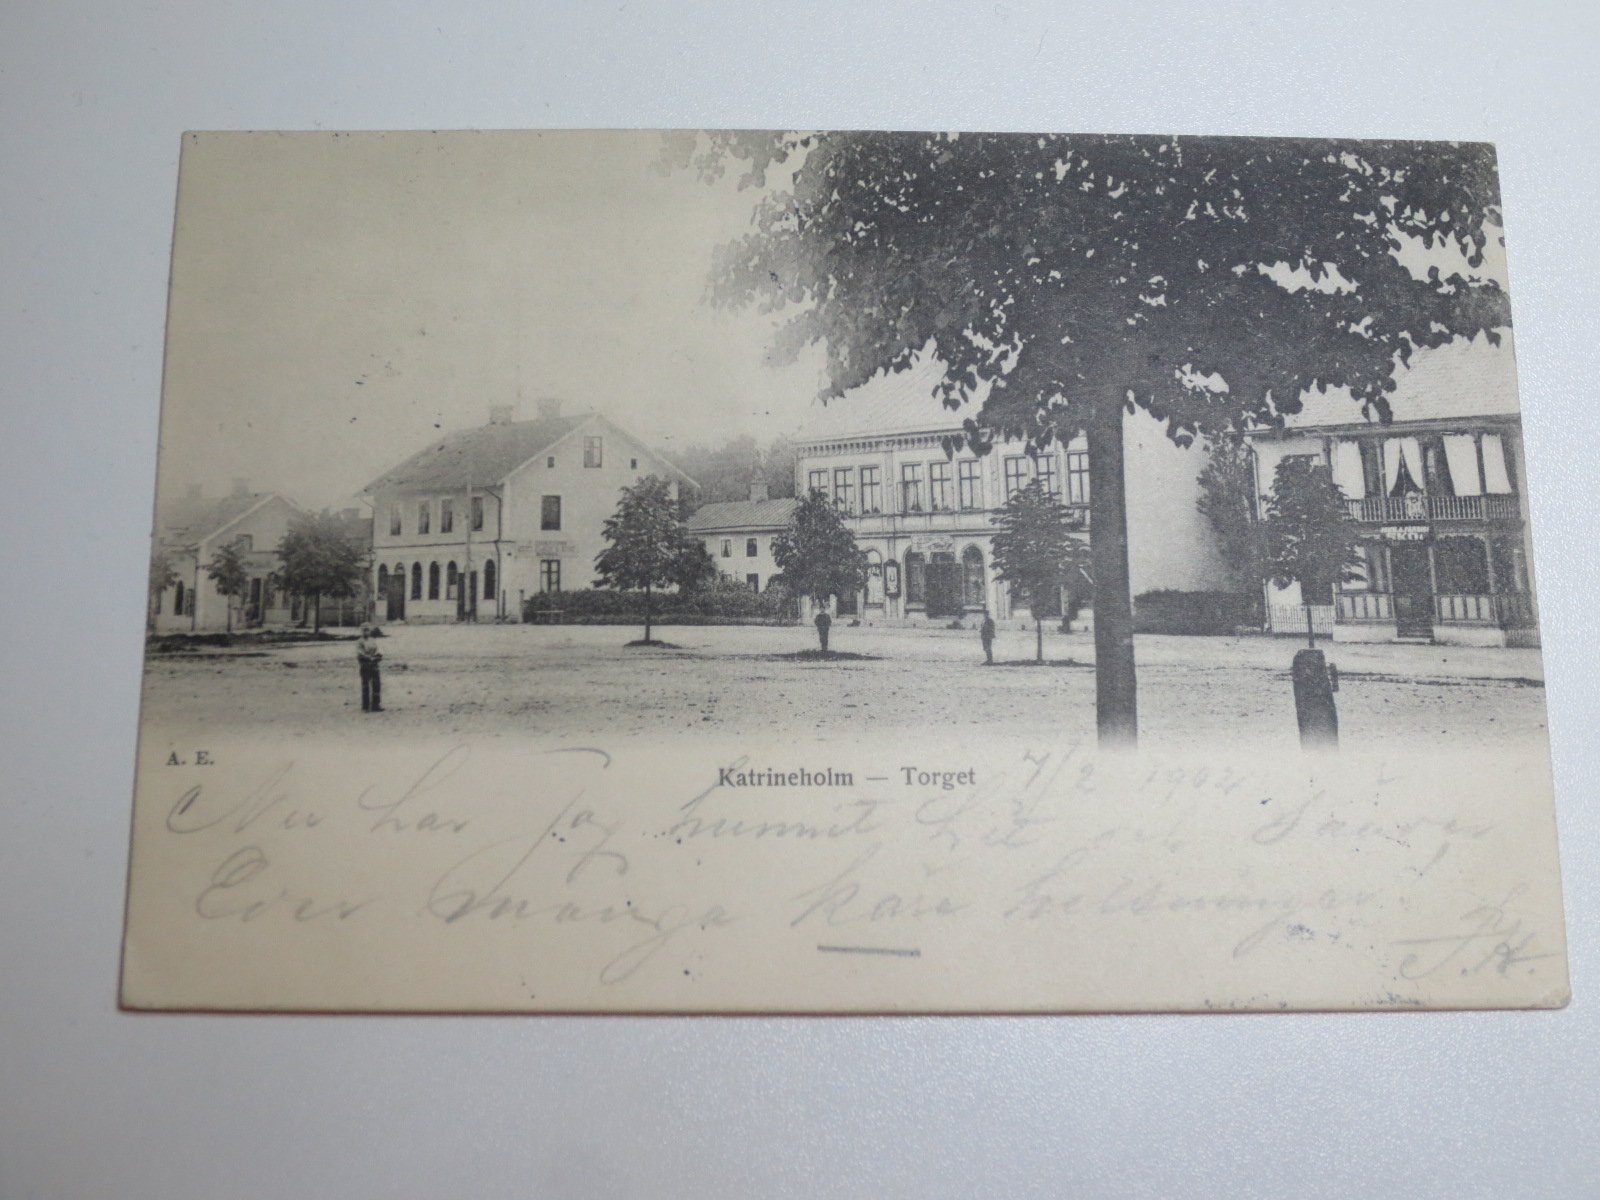 A. E.
Katrineholm — Torget 7/2 1902
Nu har jag hunnit hit och
Eder många kära helsningar!